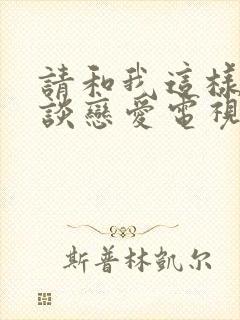 請和我這樣
談戀愛電視
斯普林凱尔